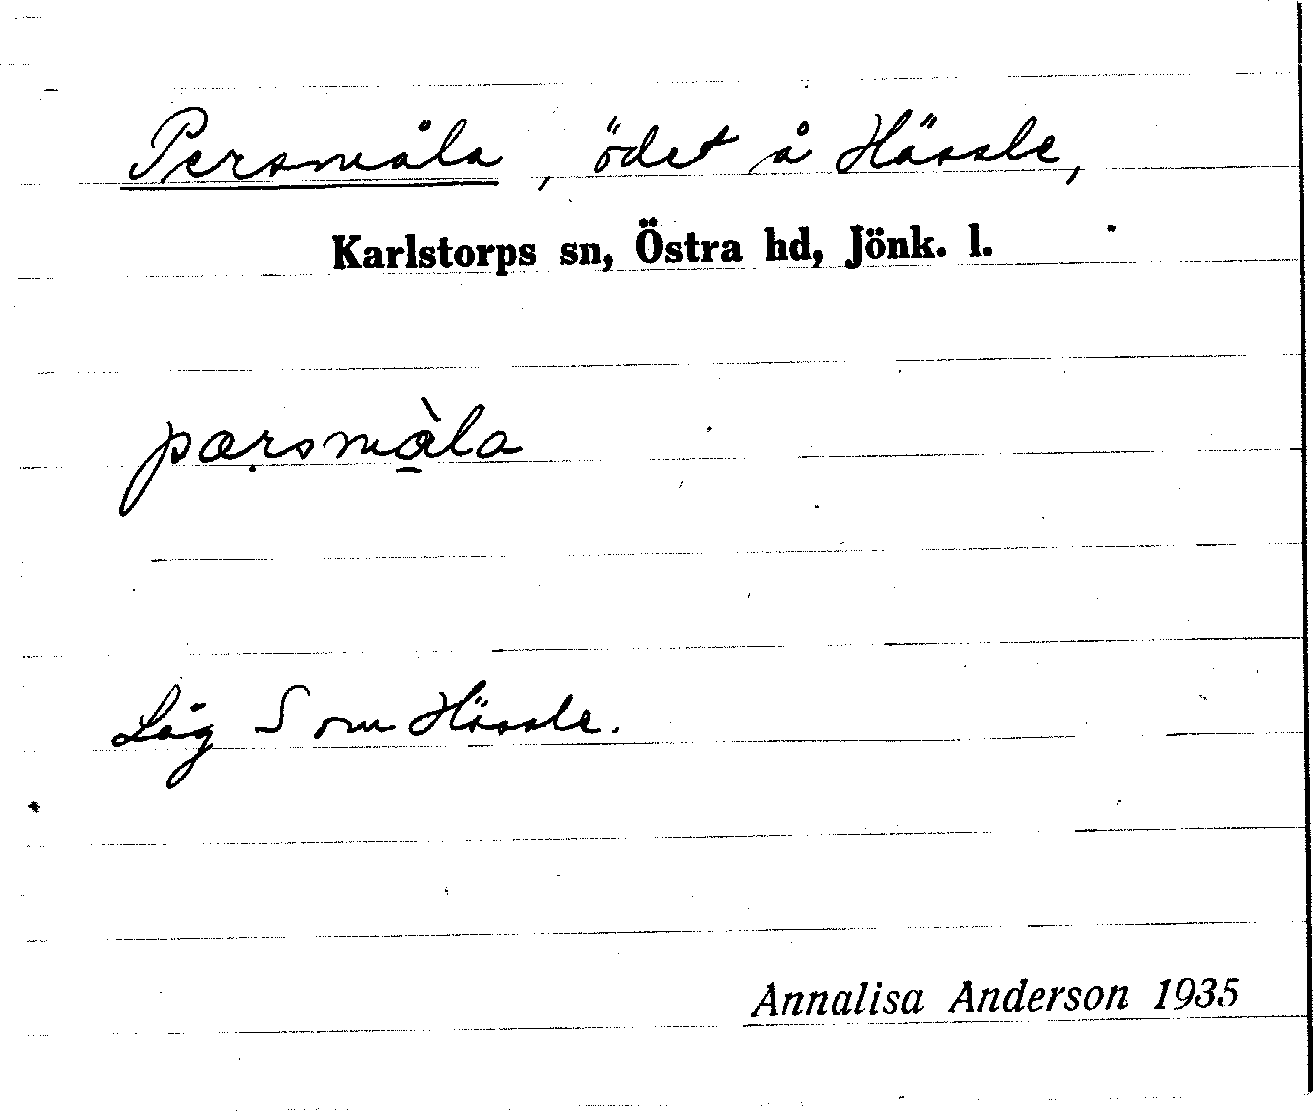 Persmåla, ödet å Hässle,
Karlstorps sn, Östra hd, Jönk. l.
pærsmå̀la
Låg S om Hässle.
Annalisa Anderson 1935